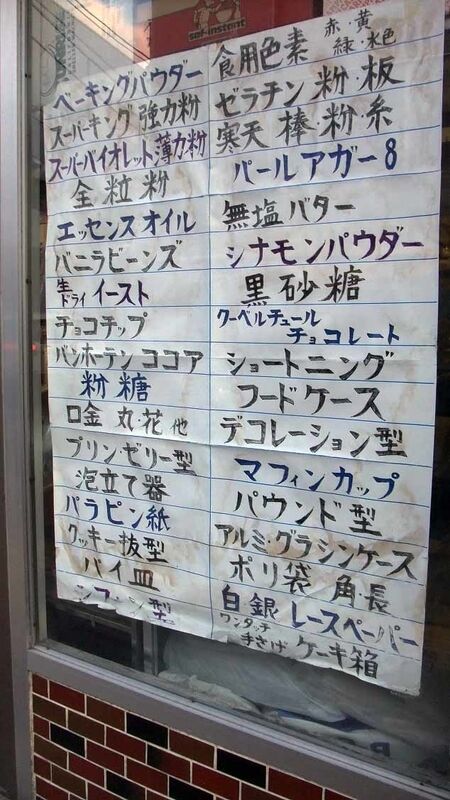 saf-instant
ベーキングパウダー
スーパーキング 強力粉
スーパーバイオレット薄力粉
全粒粉
エッセンス オイル
バニラビーンズ
生 ドライ イースト
チョコチップ
バンホーテン ココア
粉糖
口金 丸・花 他
プリン・ゼリー型
泡立て器
パラピン紙
クッキー抜型
パイ皿
シフォン型
食用色素 赤・黄 緑・水色
ゼラチン 粉・板
寒天 棒・粉・糸
パールアガー8
無塩バター
シナモンパウダー
黒砂糖
クーベルチュール
チョコレート
ショートニング
フードケース
デコレーション型
マフィンカップ
パウンド型
アルミ・グラシンケース
ポリ袋 角長
白銀 レースペーパー
ワンタッチ 手さげ ケーキ箱